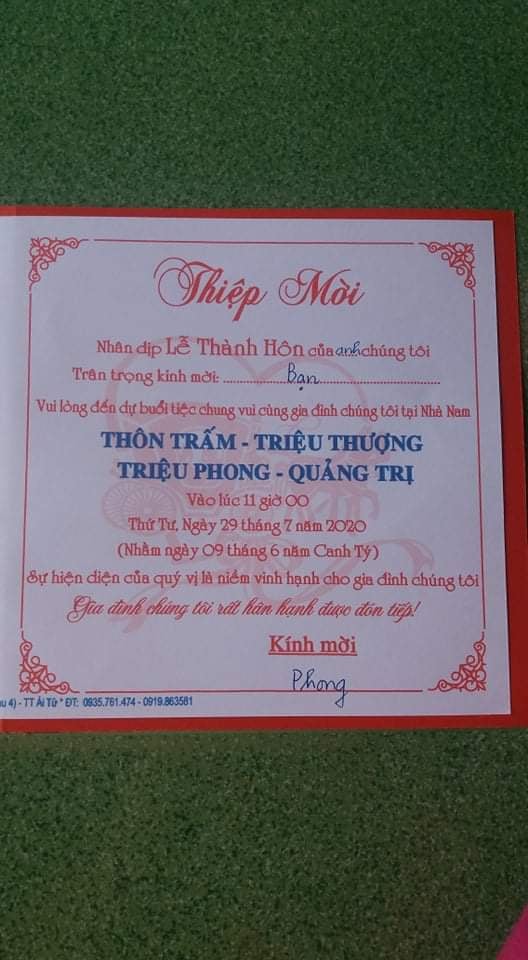 Thiệp Mời
Nhân dịp Lễ Thành Hôn của anh chúng tôi
Trân trọng kính mời: Bạn
Vui lòng đến dự buổi tiệc chung vui cùng gia đình chúng tôi tại Nhà Nam
THÔN TRẤM - TRIỆU THƯỢNG
TRIỆU PHONG - QUẢNG TRỊ
Vào lúc 11 giờ 00
Thứ Tư, Ngày 29 tháng 7 năm 2020
(Nhằm ngày 09 tháng 6 năm Canh Tý)
Sự hiện diện của quý vị là niềm vinh hạnh cho gia đình chúng tôi
Gia đình chúng tôi rất hân hạnh được đón tiếp!
Kính mời
Phong
4) - TT Ái Tử * ĐT: 0935.761.474 - 0919.863581